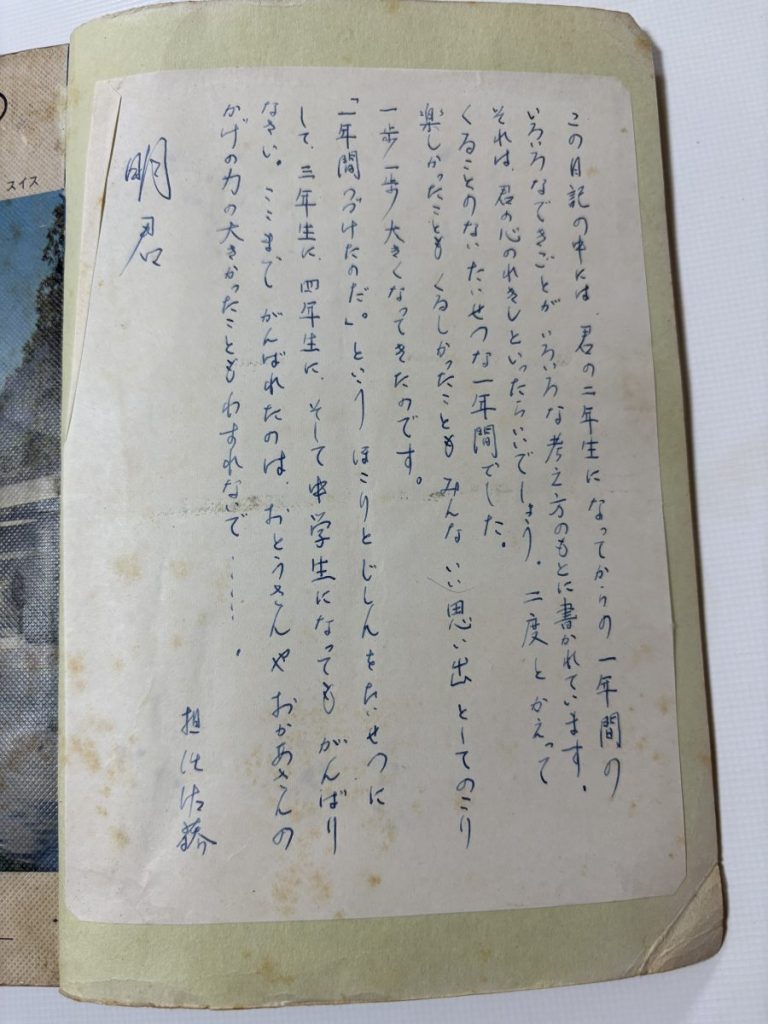 この日記の中には、君の二年生になってからの一年間の
いろいろなできごとがいろいろな考え方のもとに書かれています。
それは、君の心のれきしといったらいいでしょう。二度とかえって
くることのないたいせつな一年間でした。
楽しかったことも くるしかったことも みんな いい思い出としてのこり
一歩一歩大きくなってきたのです。
「一年間つづけたのだ。」という ほこりとじしんをたいせつに
して、三年生に、四年生に、そして中学生になっても がんばり
なさい。ここまで がんばれたのは、おとうさんや おかあさんの
かげの力の大きかったことも わすれないで……。
担任佐藤
明君
スイス